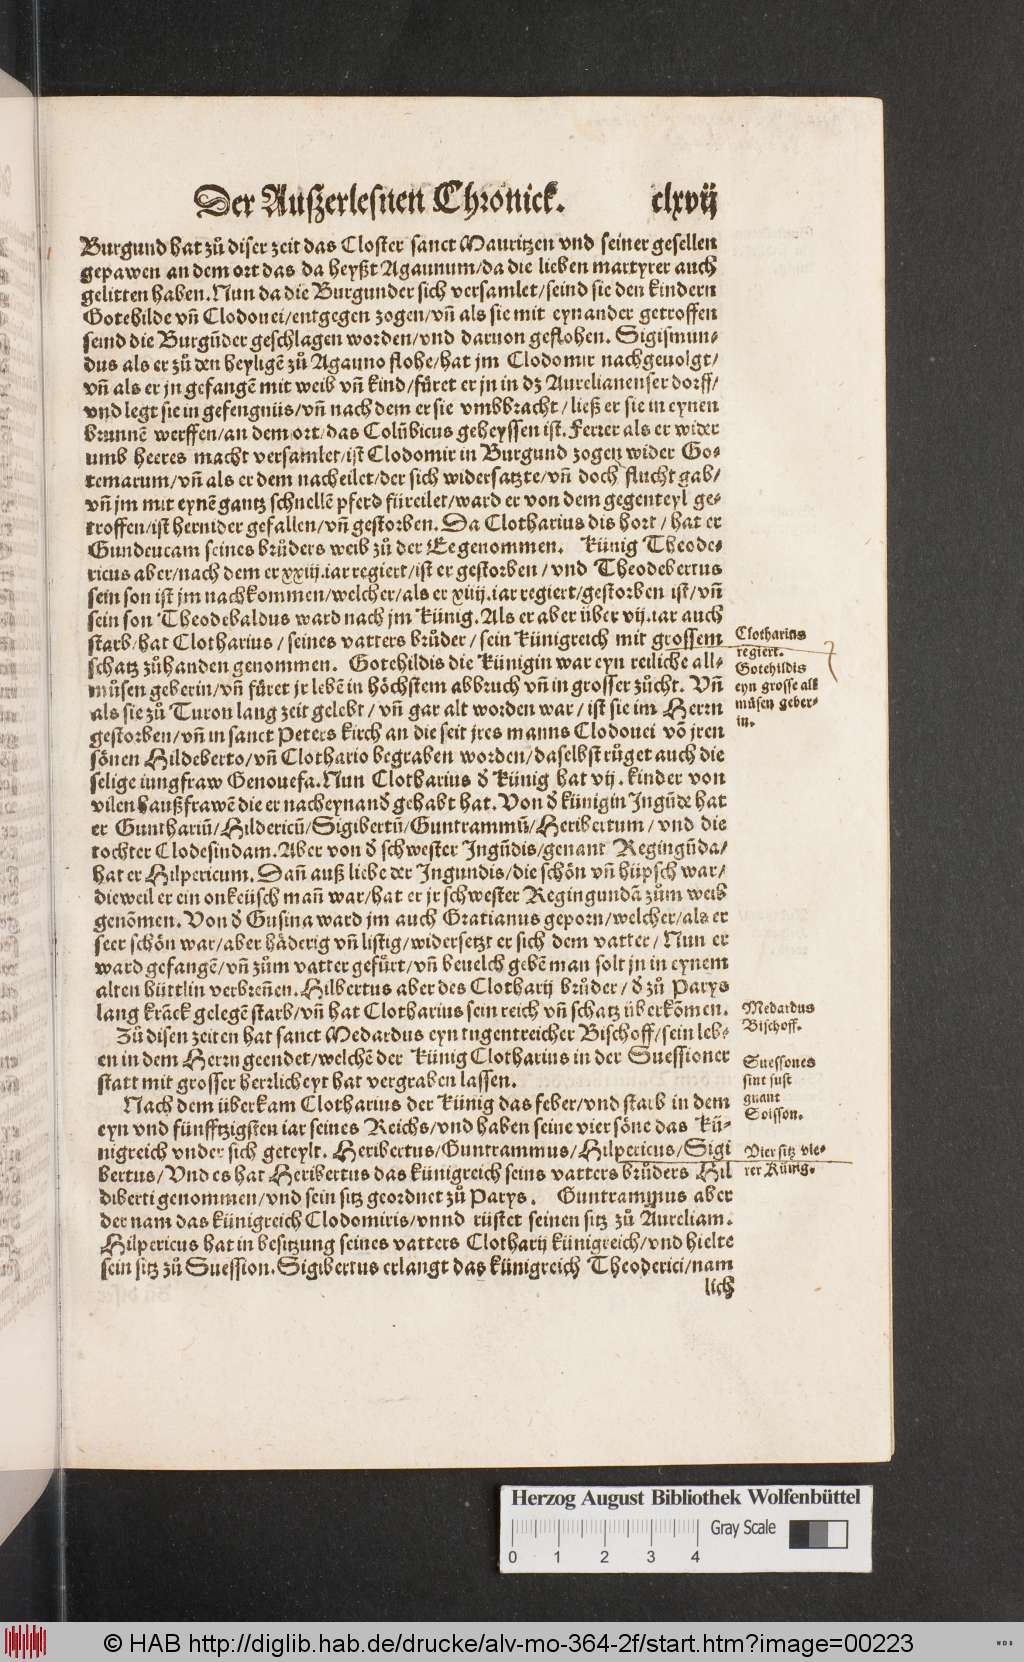 Der Außerlesnen Chronick. clxvij
Burgund hat zů diser zeit das Closter sanct Mauritzen vnd seiner gesellen
gepawen an dem ort das da heyßt Agaunum/da die lieben martyrer auch
gelitten haben.Nun da die Burgunder sich versamlet/seind sie den kindern
Gotehilde vñ Clodouei/entgegen zogen/vñ als sie mit eynander getroffen
seind die Burgũder geschlagen worden/vnd daruon geflohen. Sigismun-
dus als er zů den heyligẽ zů Agauno flohe/hat jm Clodomir nachgeuolgt/
vñ als er jn gefangẽ mit weib vñ kind/fůret er jn in dz Aurelianenser dorff/
vnd legt sie in gefengnüs/vñ nach dem er sie vmbbracht/ließ er sie in eynen
brunnẽ werffen/an dem ort/das Colũbicus geheyssen ist.Ferrer als er wider
umb heeres macht versamlet/ist Clodomir in Burgund zogen wider Go-
temarum/vñ als er dem nacheilet/der sich widersatzte/vñ doch flucht gab/
vñ jm mit eynẽ gantz schnellẽ pferd füreilet/ward er von dem gegenteyl ge-
troffen/ist hernider gefallen/vñ gestorben. Da Clotharius dis hort/hat er
Gundeucam seines brůders weib zů der Ee genommen. Künig Theode-
ricus aber/nach dem er xxiij.iar regiert/ist er gestorben/vnd Theodebertus
sein son ist jm nachkommen/welcher/als er xiiij.iar regiert/gestorben ist/vñ
sein son Theodebaldus ward nach jm Künig.Als er aber über vij.iar auch
starb/hat Clotharius/seines vatters brůder/sein Künigreich mit grossem
schatz zůhanden genommen. Gotehildis die Künigin war eyn reiliche all-
můsen geberin/vñ fůret jr lebẽ in höchstem abbruch vñ in grosser zůcht. Vñ
als sie zů Turon lang zeit gelebt/vñ gar alt worden war/ist sie im Herrn
gestorben/vñ in sanct Peters kirch an die seit jres manns Clodouei võ jren
sönen Hildeberto/vñ Clothario begraben worden/daselbst růget auch die
selige iungfraw Genouefa.Nun Clotharius ď Künig hat vij.kinder von
vilen haußfrawẽ die er nacheynanď gehabt hat.Von ď künigin Ingũde hat
er Guntharium̃/Hildericũ/Sigibertũ/Guntrammũ/Heribertum/vnd die
tochter Clodesindam.Aber von ď schwester Ingũdis/genant Regingũda/
hat er Hilpericum.Dañ auß liebe der Ingundis/die schön vñ hüpsch war/
dieweil er ein onkeüsch mañ war/hat er jr schwester Regingundã zům weib
genõmen.Von ď Gusina ward jm auch Gratianus geporn/welcher/als er
seer schön war/aber häderig vñ listig/widersetzt er sich dem vatter/Nun er
ward gefangẽ/vñ zům vatter gefůrt/vñ beuelch gebẽ man solt jn in eynem
alten hüttlin verbreñen.Hilbertus aber des Clotharij brůder/ď zů Parys
lang krãck gelegẽ starb/vñ hat Clotharius sein reich vñ schatz überkõmen.
Zů disen zeiten hat sanct Medardus eyn tugentreicher Bischoff/sein leb-
en in dem Herrn geendet/welchẽ der Künig Clotharius in der Suessioner
statt mit grosser herrlicheyt hat vergraben lassen.
Nach dem überkam Clotharius der Künig das feber/vnd starb in dem
eyn vnd fünfftzigsten iar seines Reichs/vnd haben seine vier söne das kü-
nigreich vnder sich geteylt. Heribertus/Guntrammus/Hilpericus/Sigi
bertus/Vnd es hat Heribertus das künigreich seins vatters brůders Hil
diberti genommen/vnd sein sitz geordnet zů Parys. Guntrammus aber
der nam das künigreich Clodomiris/vnnd rüstet seinen sitz zů Aureliam.
Hilpericus hat in besitzung seines vatters Clotharij künigreich/vnd hielte
sein sitz zů Suession.Sigibertus erlangt das künigreich Theoderici/nam
lich
Clotharius
regiert.
Gotehildis
eyn grosse all
můsen geber-
in.
Medardus
Bischoff.
Suessones
sint iust
gnant
Soisson.
Vier sitz vie-
rer Künig.
Herzog August Bibliothek Wolfenbüttel
Gray Scale
0 1 2 3 4
© HAB http://diglib.hab.de/drucke/alv-mo-364-2f/start.htm?image=00223